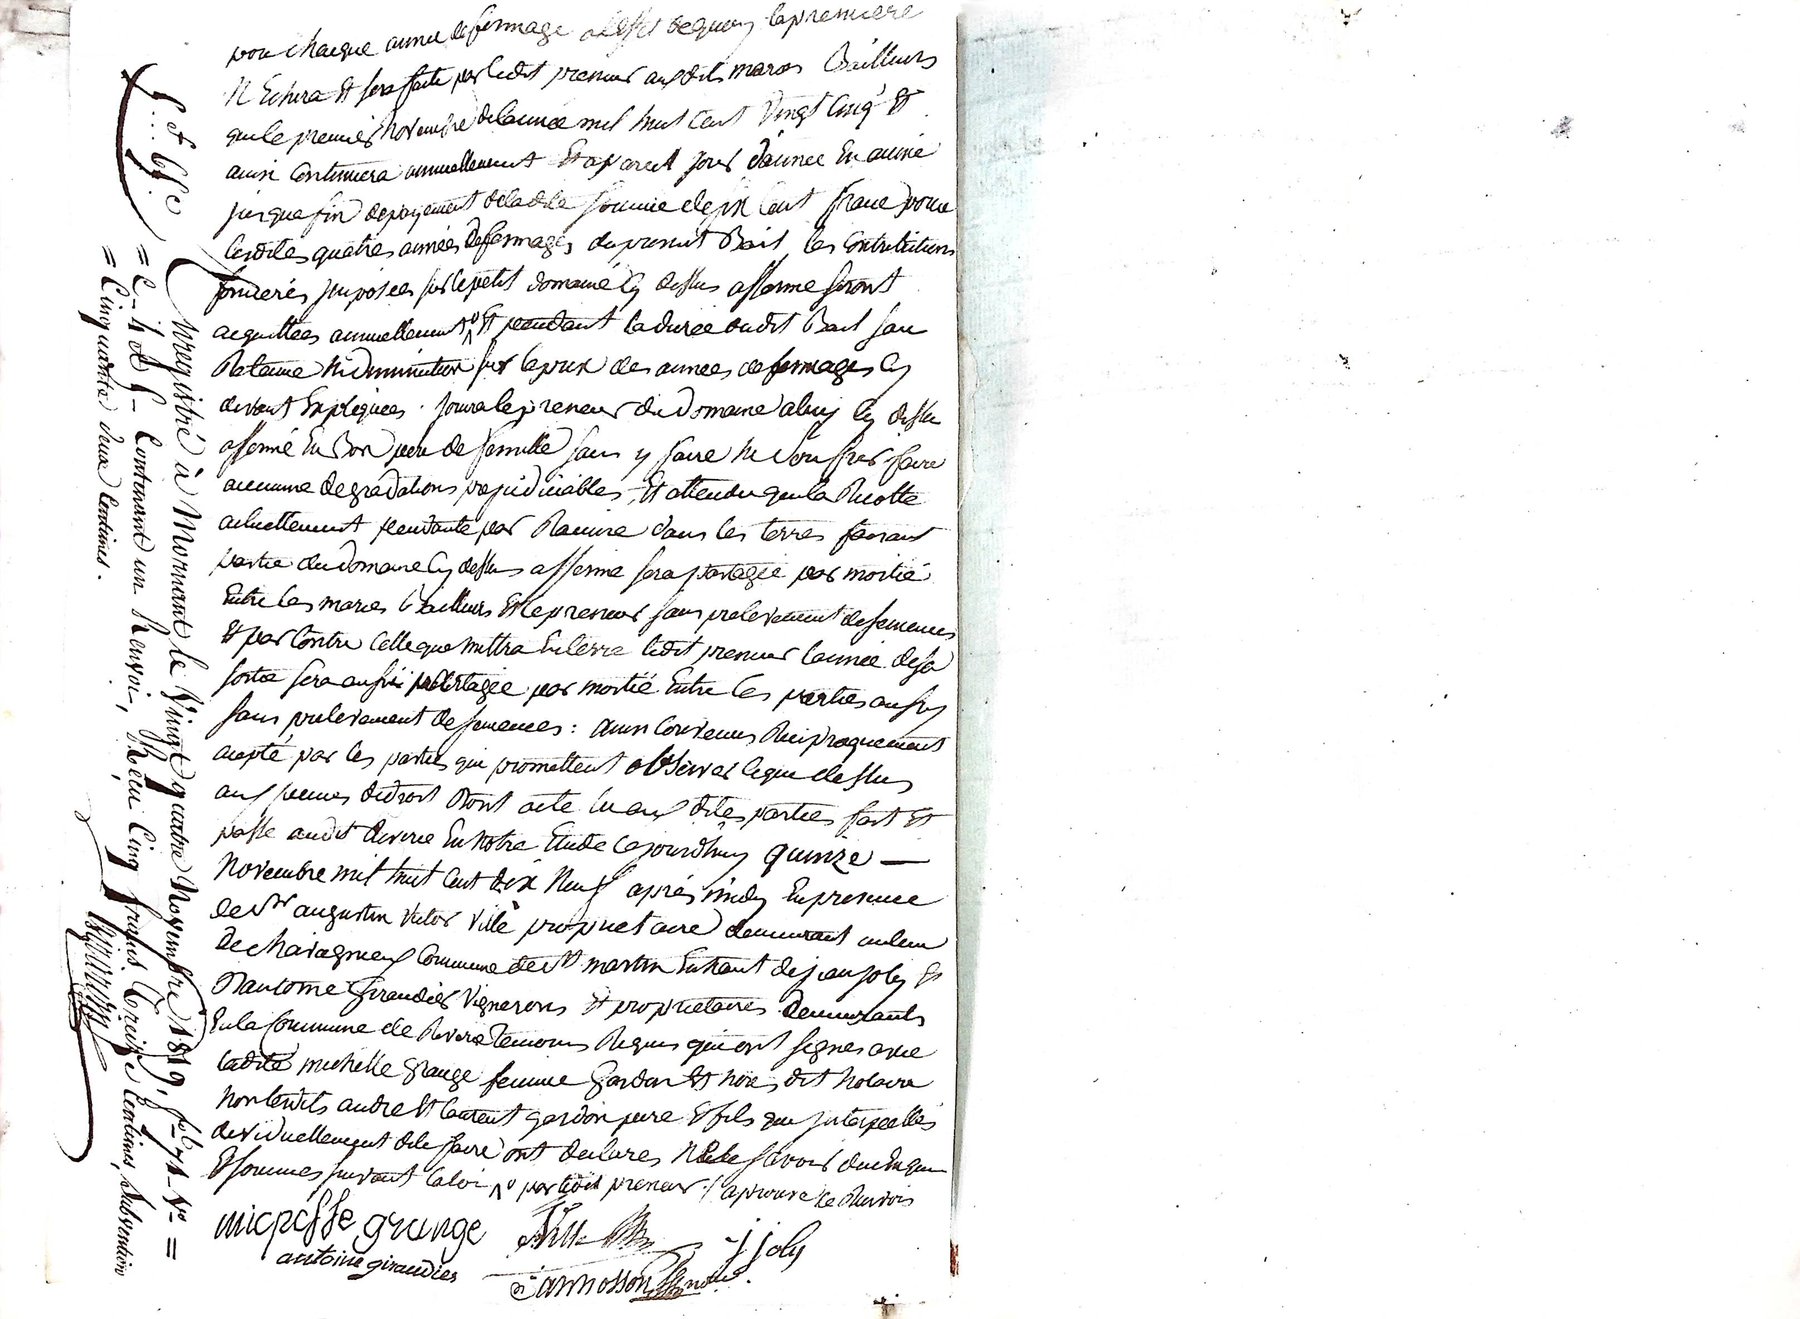 pour chaque année de fermage à l'effet de quoy la première
N'Echera Et sera faite par ledit preneur auxdits maries Bailleurs
que le premier Novembre de l'année mil huit Cent Vingt Cinq Et
ainsi Continuera annuellement Et a pareil jour d'année En année
jusque fin de payement de ladite somme de six Cent franc pour
lesdites quatres années de fermages du present Bail, les Contributions
foncierés jmposées sur le petit domaine Cy dessus affermé seront
acquittées annuellement Et pendant la durée dudit Bail sans
Retenue Ni diminution sur le prix des années de fermages Cy
devant Expliquees. jouira le preneur du Domaine a luy Cy dessus
affermé En Bon pere de famille sans y faire Ni souffrir faire
aucune degradations préjudiciables, Et attendu que la Recolte
actuellement pendante par Racine dans les terres faisant
partie du Domaine Cy dessus affermé sera partagée par moitié
Entre les maries Bailleurs Et le preneur sans prelevement de semences
Et par Contre Celle que mettra En terre ledit preneur l'année de sa
sortie sera aussi partagée par moitié Entre les parties aussy
sans prelevement de semences : ainsi Convenus Reciproquement
accepté par les parties qui promettent observer Ce que dessus
aux peines de droit Dont acte lu aux dites parties fait Et
passé audit Riverie En Notre Etude Ce jourd'huy quinze —
Novembre mil huit Cent dix Neuf après midy En presence
de Sr augustin Victor Ville proprietaire demeurant au lieu
de Chavagneux Commune de St martin En haut de jean joly Et
D'antoine Giraudier Vignerons Et proprietaires demeurants
En la Commune de Riverie Temoins Requis qui ont signés avec
ladite michelle Grange femme Gardon Et Nous, dit Notaire
Non lesdits andré Et laurent gardon pere Et fils qui jnterpellés
dividuellement de le faire ont declarés Ne le savoir du Enquis
Et sommes suivant la loi. par ledit preneur ./. aprouvé le Renvois
michelle grange Ville j joly
antoine giraudier
Jannosson Nore.
Enregistré à Mornant le Vingt quatre Novembre 1819, fo 71 Vo =
Contenant un Renvoi, Reçu Cinq francs treize Centimes, subvention
= Cinquante deux Centimes.